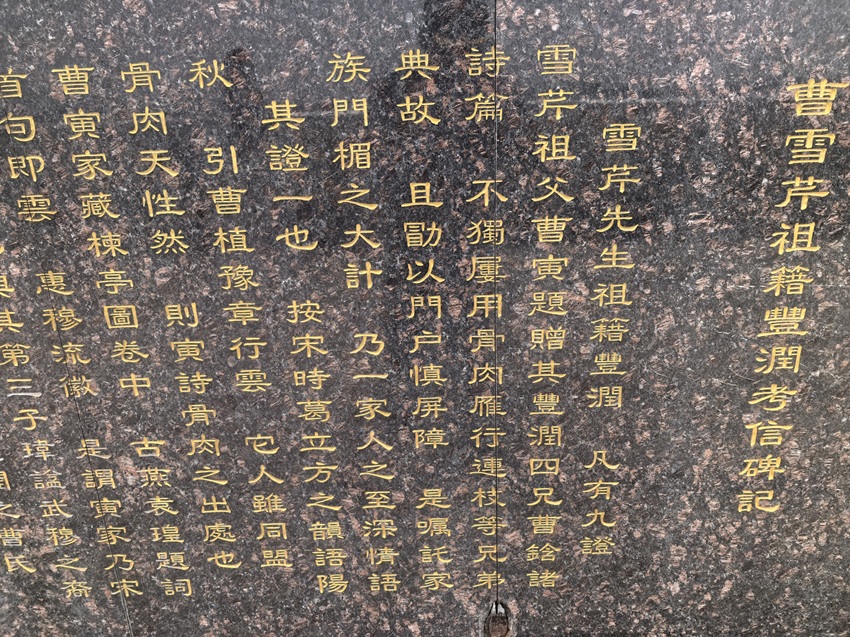 曹雪芹祖籍豐潤考信碑記
雪芹先生祖籍豐潤 凡有九證
雪芹祖父曹寅題贈其豐潤四兄曹鋡諸
詩篇 不獨屢用骨肉雁行連枝等兄弟
典故 且勖以門户慎屏障 是囑託家
族門楣之大計 乃一家人之至深情語
其證一也 按宋時葛立方之韻語陽
秋 引曹植豫章行雲 它人雖同盟
骨肉天性然 則寅詩骨肉之出處也
曹寅家藏楝亭圖卷中 古燕袁瑝題詞
首句即雲 惠穆流徽 是謂寅家乃宋
其第三子瑋諡武穆之裔
之曹氏